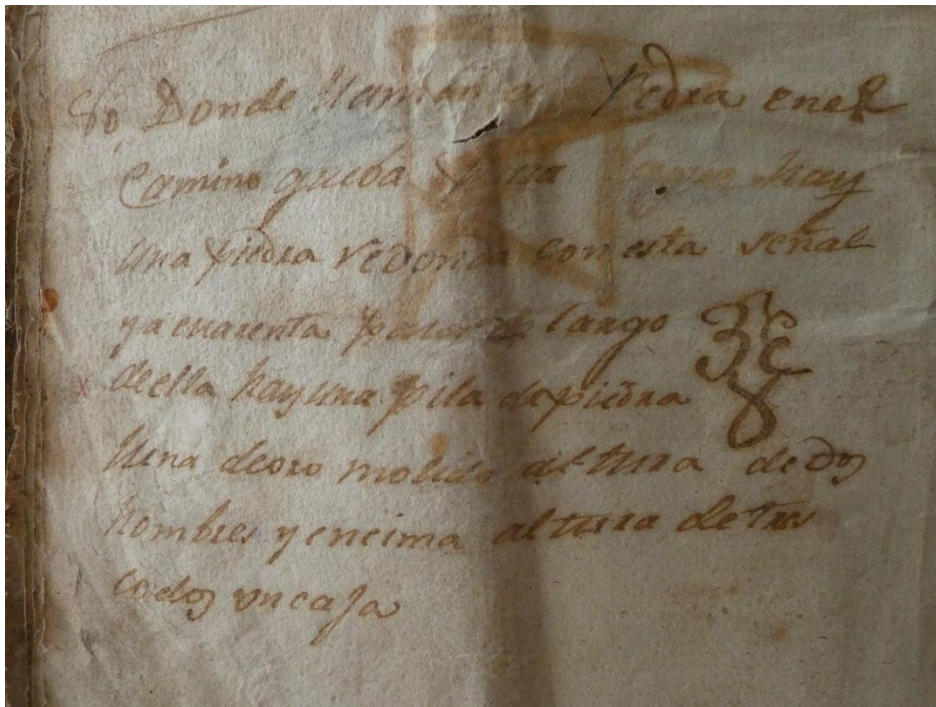 80 Donde llaman a Piedra enel
Camino queba para hay
una piedra redonda con esta señal
ya cuarenta pasos de largo
deella hay una pila de piedra
llena deoro molido altura de dos
hombres y encima altura de tres
codos un caja